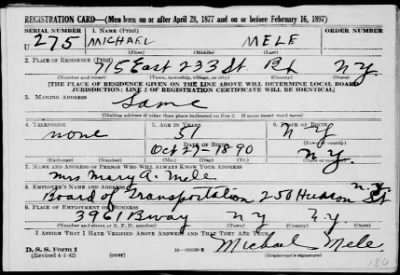 REGISTRATION CARD—(Men born on or after April 28, 1877 and on or before February 16, 1897)
SERIAL NUMBER 1. NAME (Print) ORDER NUMBER
U 275 MICHAEL MELE
(First) (Middle) (Last)
2. PLACE OF RESIDENCE (Print)
715 East 233 St N Y
(Number and street) (Town, township, village, or city) (County) (State)
[THE PLACE OF RESIDENCE GIVEN ON THE LINE ABOVE WILL DETERMINE LOCAL BOARD
JURISDICTION; LINE 2 OF REGISTRATION CERTIFICATE WILL BE IDENTICAL]
3. MAILING ADDRESS
Same
[Mailing address if other than place indicated on line 2. If same insert word same]
4. TELEPHONE 5. AGE IN YEARS 6. PLACE OF BIRTH
none 51 N Y
DATE OF BIRTH
Oct 27-1890 N Y.
(Exchange) (Number) (Mo.) (Day) (Yr.) (State or country)
7. NAME AND ADDRESS OF PERSON WHO WILL ALWAYS KNOW YOUR ADDRESS
Mrs Mary A. Mele
8. EMPLOYER'S NAME AND ADDRESS
Board of Transportation 250 Hudson St N.Y.
9. PLACE OF EMPLOYMENT OR BUSINESS
3961 Bway N Y N.Y.
(Number and street or R. F. D. number) (Town) (County) (State)
I AFFIRM THAT I HAVE VERIFIED ABOVE ANSWERS AND THAT THEY ARE TRUE.
D. S. S. Form 1
(Revised 4-1-42) (over)
Michael Mele
(Registrant's signature)